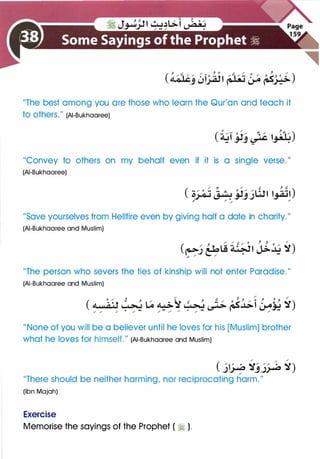 بَعْضُ أَحَادِيثِ الرَّسُولِ ﷺ
Page
159
38
Some Sayings of the Prophet ﷺ
(خَيْرُكُمْ مَنْ تَعَلَّمَ القُرْآنَ وَعَلَّمَهُ)
"The best among you are those who learn the Qur'an and teach it
to others." (Al-Bukhaaree)
(بَلِّغُوا عَنِّي وَلَوْ آيَةً)
"Convey to others on my behalf even if it is a single verse."
(Al-Bukhaaree)
(اتَّقُوا النَّارَ وَلَوْ بِشِقِّ تَمْرَةٍ)
"Save yourselves from Hellfire even by giving half a date in charity."
(Al-Bukhaaree and Muslim)
(لَا يَدْخُلُ الْجَنَّةَ قَاطِعُ رَحِمٍ)
"The person who severs the ties of kinship will not enter Paradise."
(Al-Bukhaaree and Muslim)
(لَا يُؤْمِنُ أَحَدُكُمْ حَتَّى يُحِبَّ لِأَخِيهِ مَا يُحِبُّ لِنَفْسِهِ)
"None of you will be a believer until he loves for his [Muslim] brother
what he loves for himself." (Al-Bukhaaree and Muslim)
(لَا ضَرَرَ وَلَا ضِرَارَ)
"There should be neither harming, nor reciprocating harm."
(Ibn Majah)
Exercise
Memorise the sayings of the Prophet ( ﷺ ).